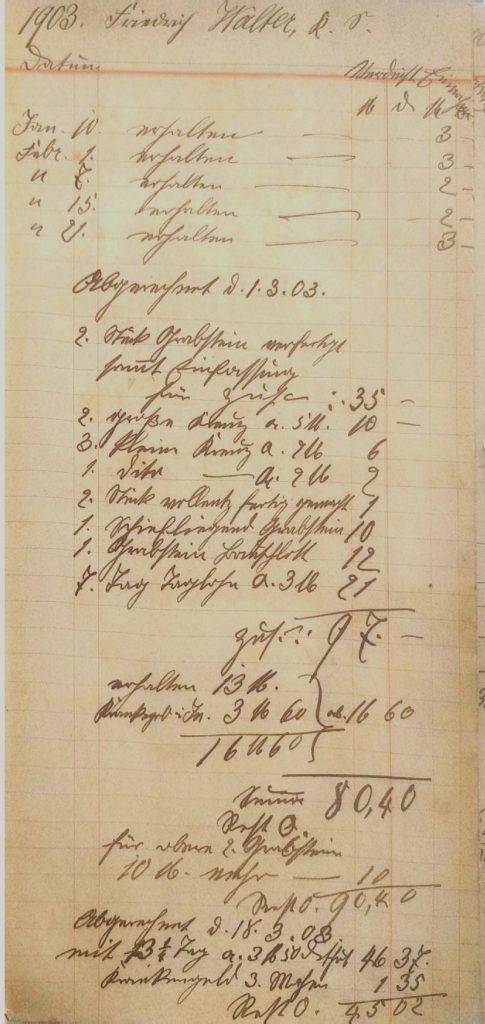 1903. Friedrich Walter, k. S.
Datum
Verdienst Einnahme
M d M
Jan. 10. erhalten — 3 –
Febr. 1. erhalten — 3 –
" 7. erhalten — 2 –
" 15. erhalten — 2 –
" 21. erhalten — 3 –
Abgerechnet d. 1. 3. 03.
2. Stück Grabstein verfertigt
sammt Einfassung
für zus. : 35 –
2. große Kreuz a. 5 M. 10 –
3. kleine Kreuz a. 2 M 6
1. dito — a. 2 M 2
2. Stück vollentz fertig gemacht 1
1. Schiefliegend Grabstein 10
1. Grabstein 12
7. Tag Taglohn a. 3 M 21
zus.: 97. –
erhalten 13 M.
3 M 60 ab. 16 60
16 M 60
Summe 80,40
Rest O.
für obere 2. Grabstein
10 M. mehr — 10
Rest O. 90,40
Abgerechnet d. 18. 3. 03.
mit 13 ½ Tag a. 3 M 50 d 46 37.
Krankengeld 3. Wochen 1 35
Rest O. 45 02